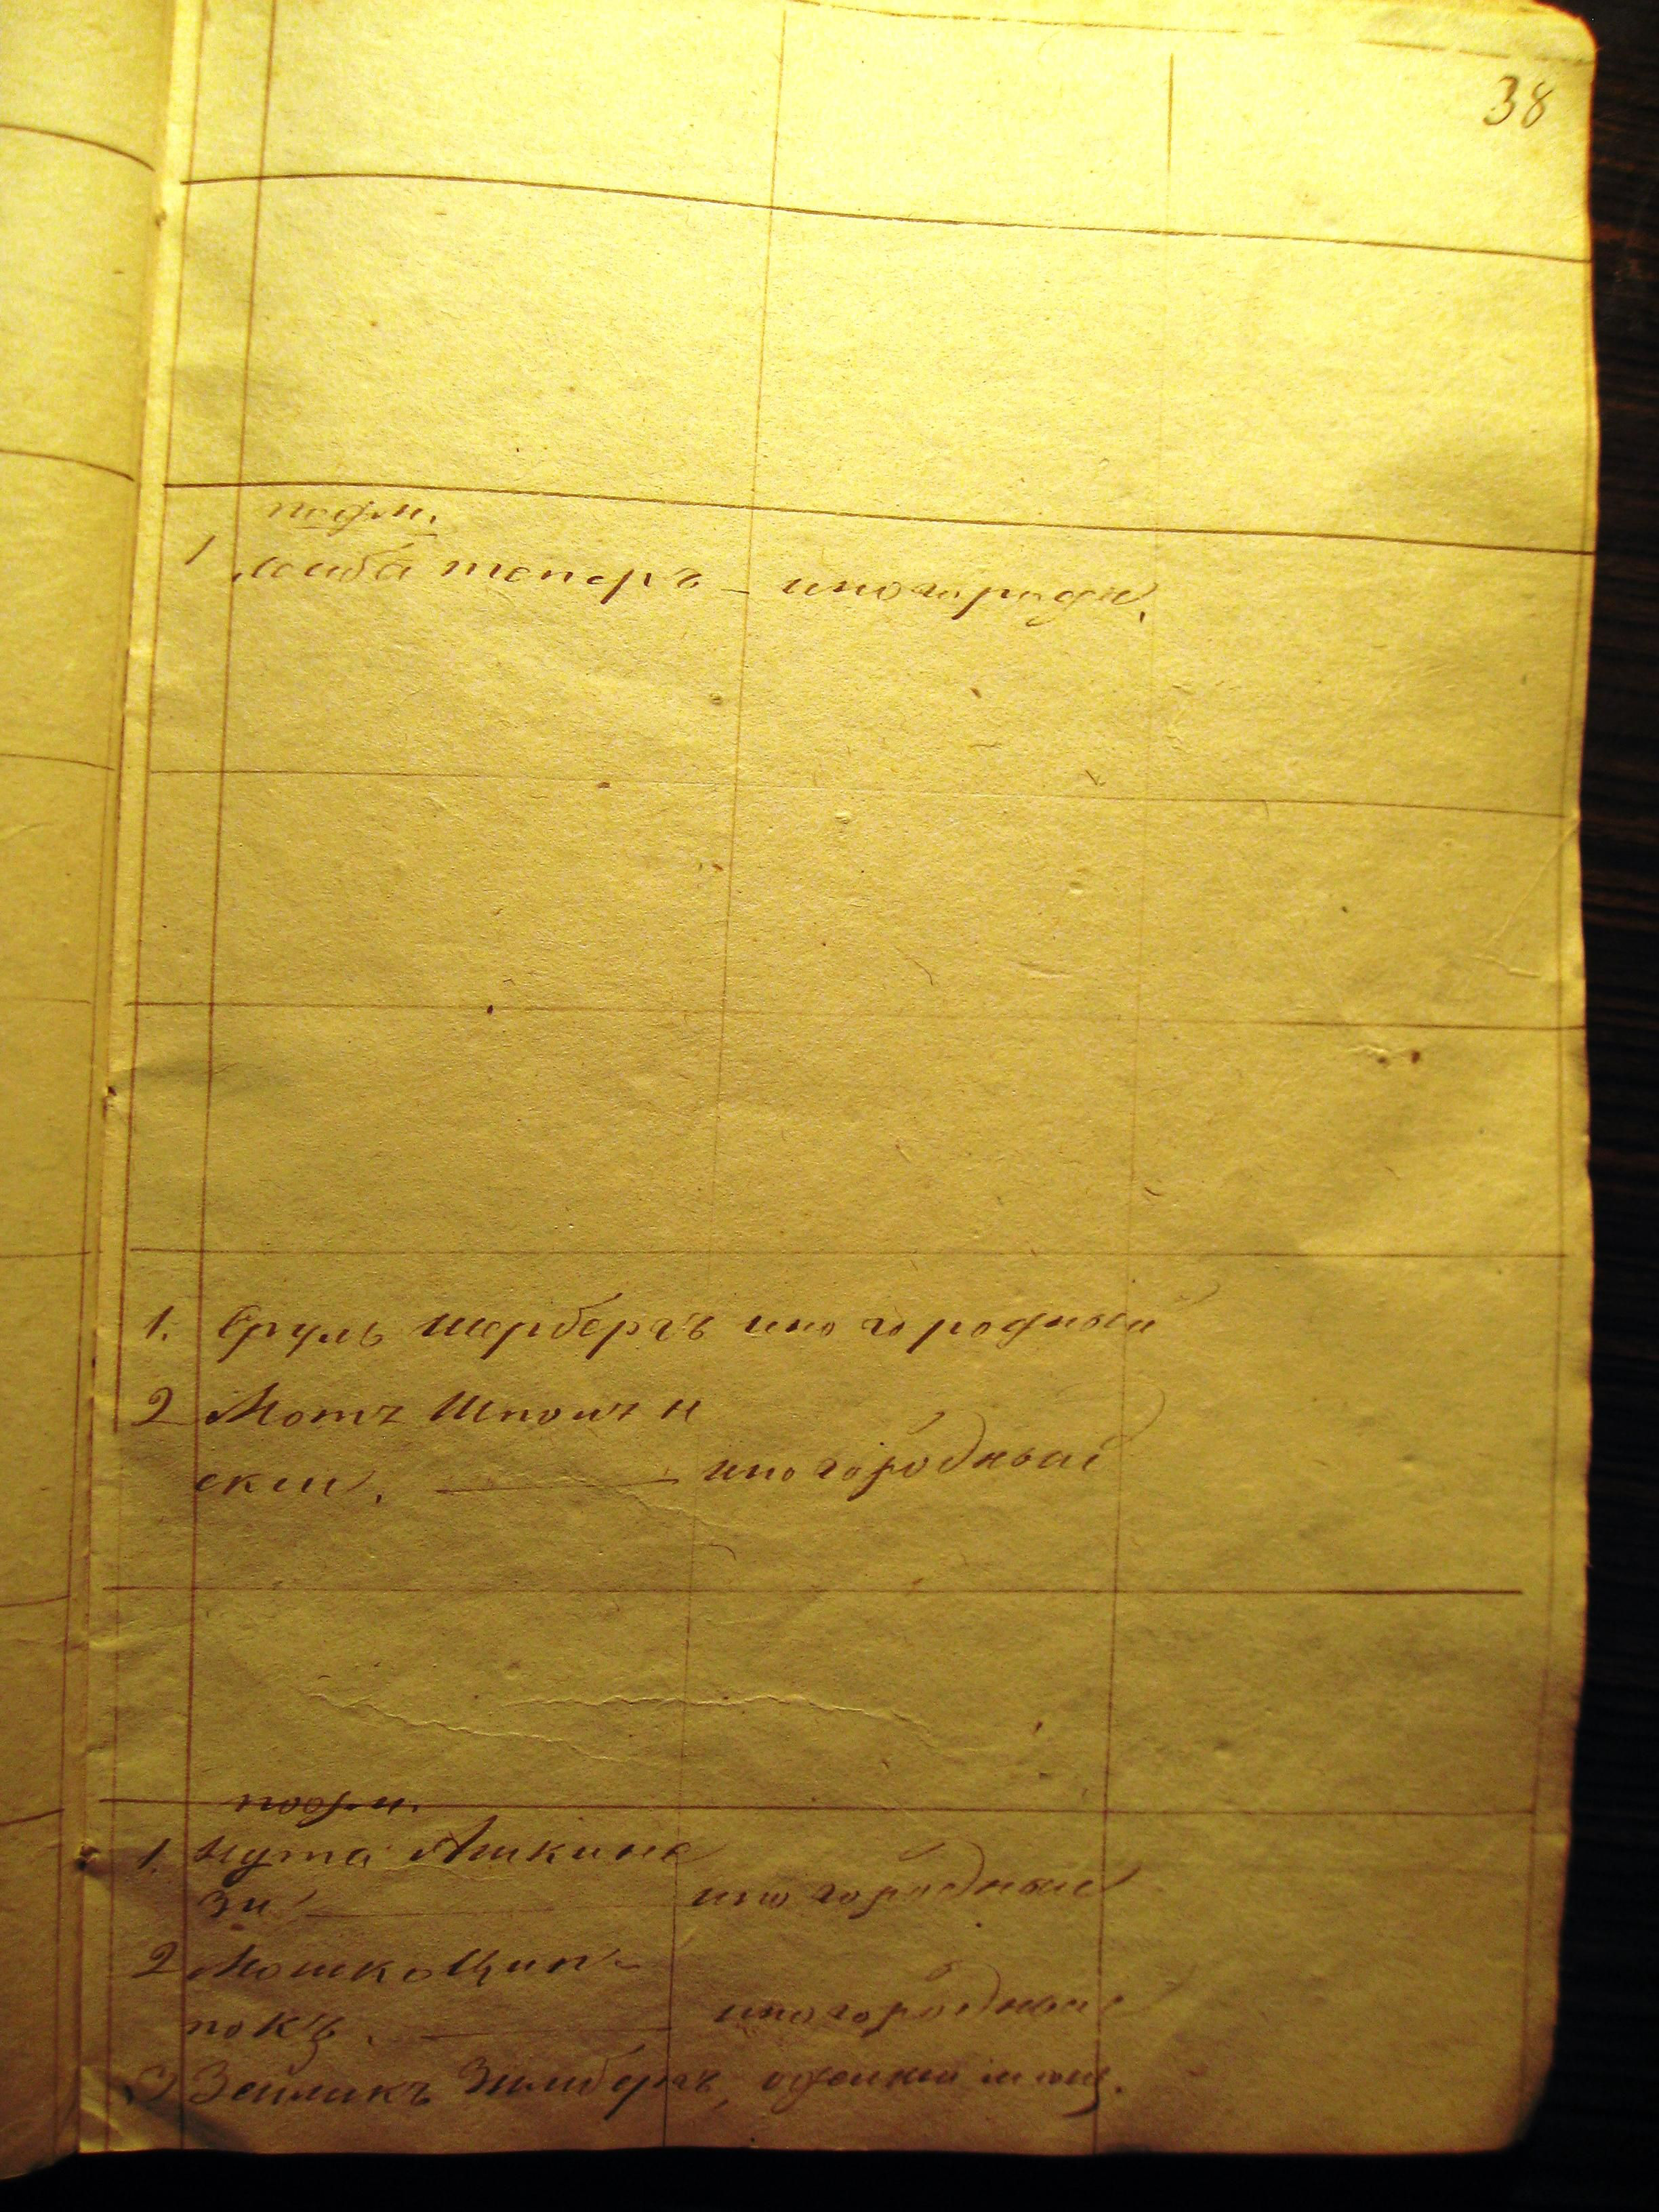 38
1 Лейба теперъ - иногородн.
1. Сруль Шербергъ иногородный
2 Мотъ Шполян
ски. иногородный
1. Нута Ашкина
зи иногородный
2 Мошко Цип-
покъ. иногородный
3 Зейликъ Зильбергъ, мещ.